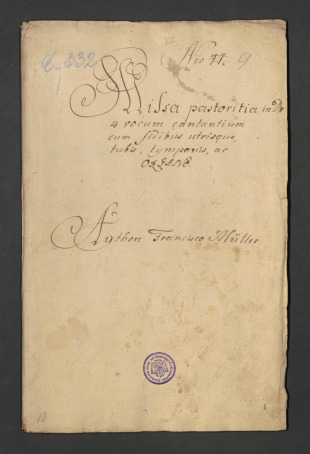 C 332
Nro 77. 9
Missa pastoritia in D♯
4 vocum cantantium
cum fidibus utrisque,
tubis, tympanis, ac
ORGANO.
Authore Francisco Müller
10
1